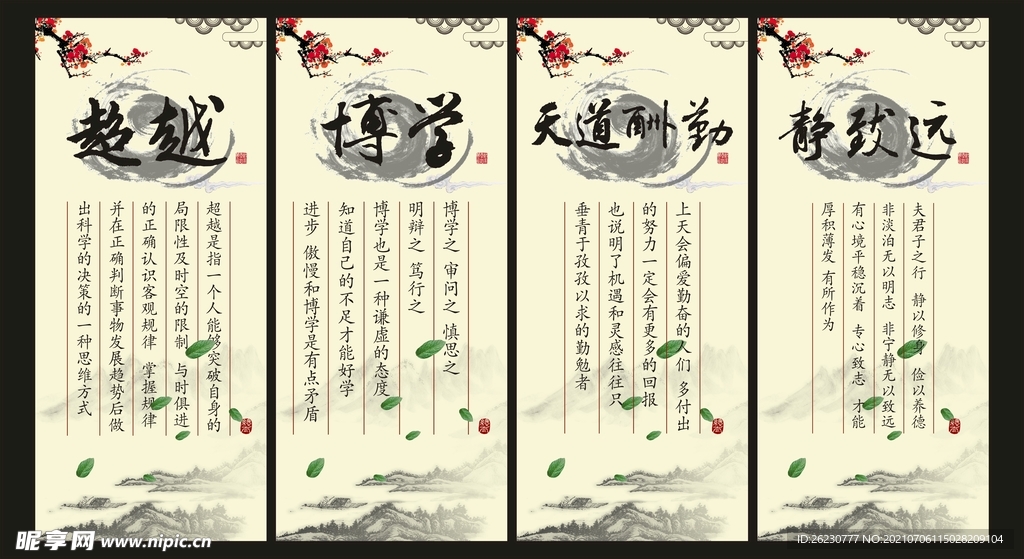 超越
超越是指一个人能够突破自身的
局限性及时空的限制 与时俱进
的正确认识客观规律 掌握规律
并在正确判断事物发展趋势后做
出科学的决策的一种思维方式
博学
博学之 审问之 慎思之
明辩之 笃行之
博学也是一种谦虚的态度
知道自己的不足才能好学
进步 傲慢和博学是有点矛盾
天道酬勤
上天会偏爱勤奋的人们 多付出
的努力一定会有更多的回报
也说明了机遇和灵感往往只
垂青于孜孜以求的勤勉者
静致远
夫君子之行 静以修身 俭以养德
非淡泊无以明志 非宁静无以致远
有心境平稳沉着 专心致志 才能
厚积薄发 有所作为
昵享网 www.nipic.cn
ID:26230777 NO:20210706115028209104